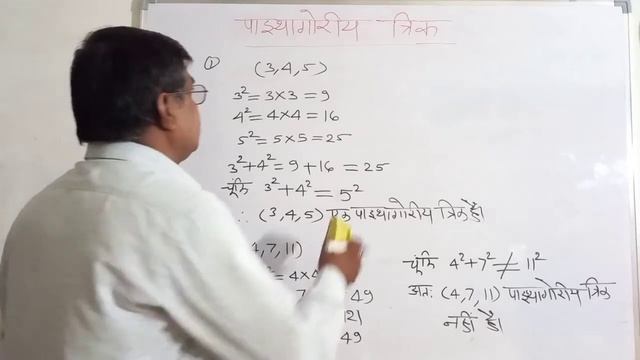 पाइथागोरीय त्रिक
① (3,4,5)
3² = 3×3 = 9
4² = 4×4 = 16
5² = 5×5 = 25
3²+4² = 9+16 = 25
चूंकि 3²+4² = 5²
∴ (3,4,5) एक पाइथागोरीय त्रिक है।
4,7,11)
² = 4×4
49
21
49
चूंकि 4²+7² ≠ 11²
अतः (4,7,11) पाइथागोरीय त्रिक
नहीं है।